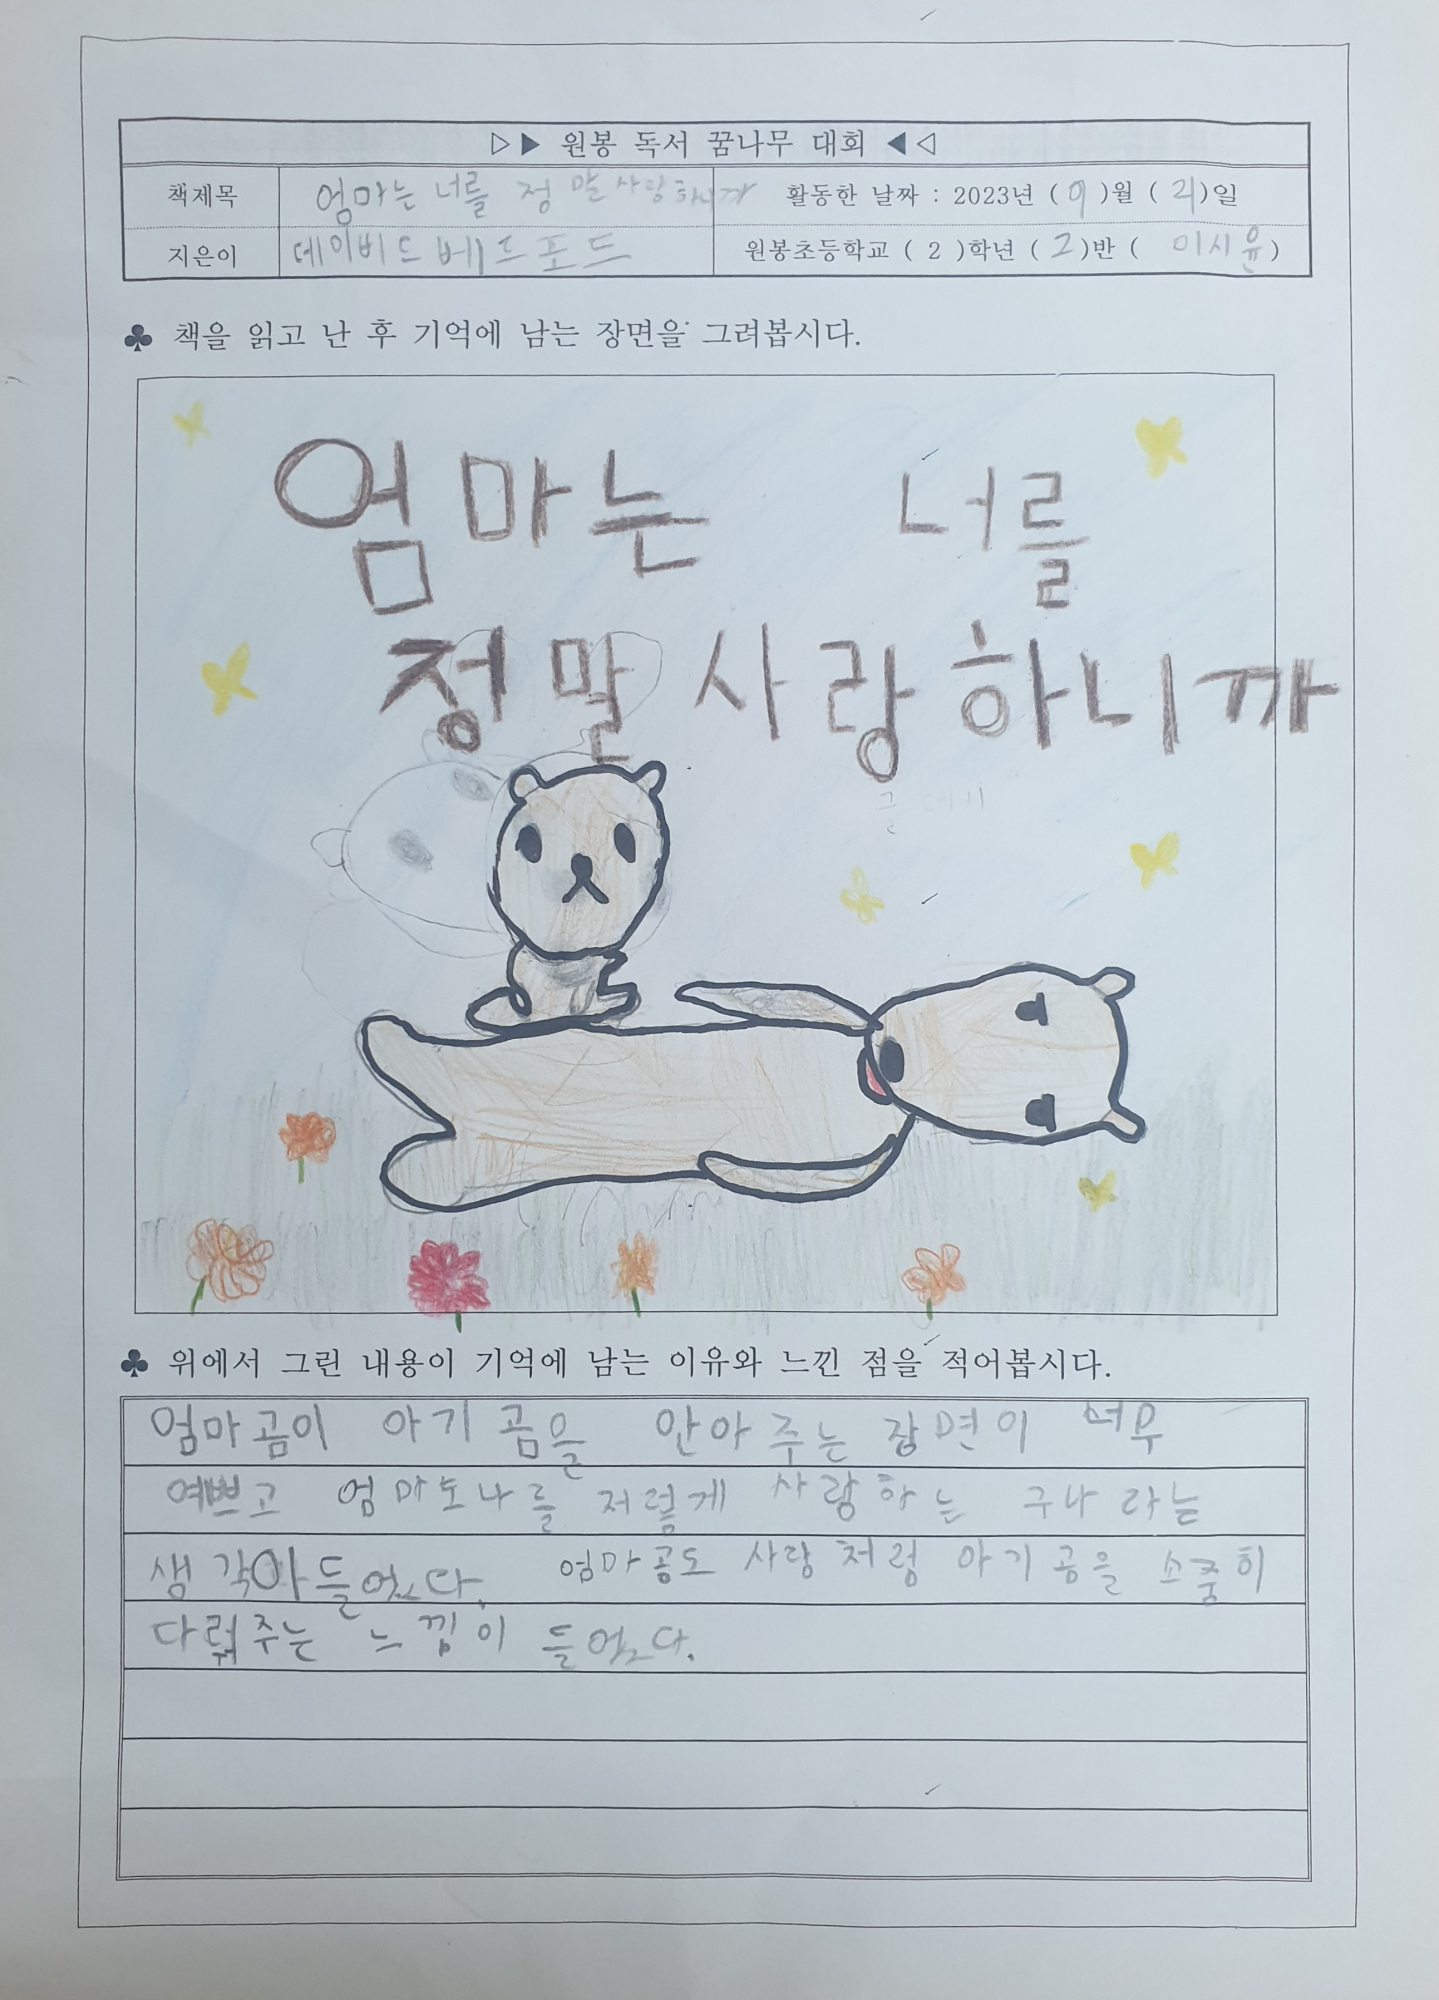 ▷▶ 원봉 독서 꿈나무 대회 ◀◁
책제목 엄마는 너를 정말 사랑하니까 활동한 날짜 : 2023년 ( 9 )월 ( 21 )일
지은이 데이비드 베드포드 원봉초등학교 ( 2 )학년 ( 2 )반 ( 이시윤 )
♣ 책을 읽고 난 후 기억에 남는 장면을 그려봅시다.
엄마는 너를
정말 사랑하니까
♣ 위에서 그린 내용이 기억에 남는 이유와 느낀 점을 적어봅시다.
엄마곰이 아기 곰을 안아 주는 장면이 너무
예쁘고 엄마도 나를 저렇게 사랑하는 구나 라는
생각아 들었다. 엄마곰도 사람 처럼 아기 곰을 소중히
다뤄주는 느낌이 들었다.